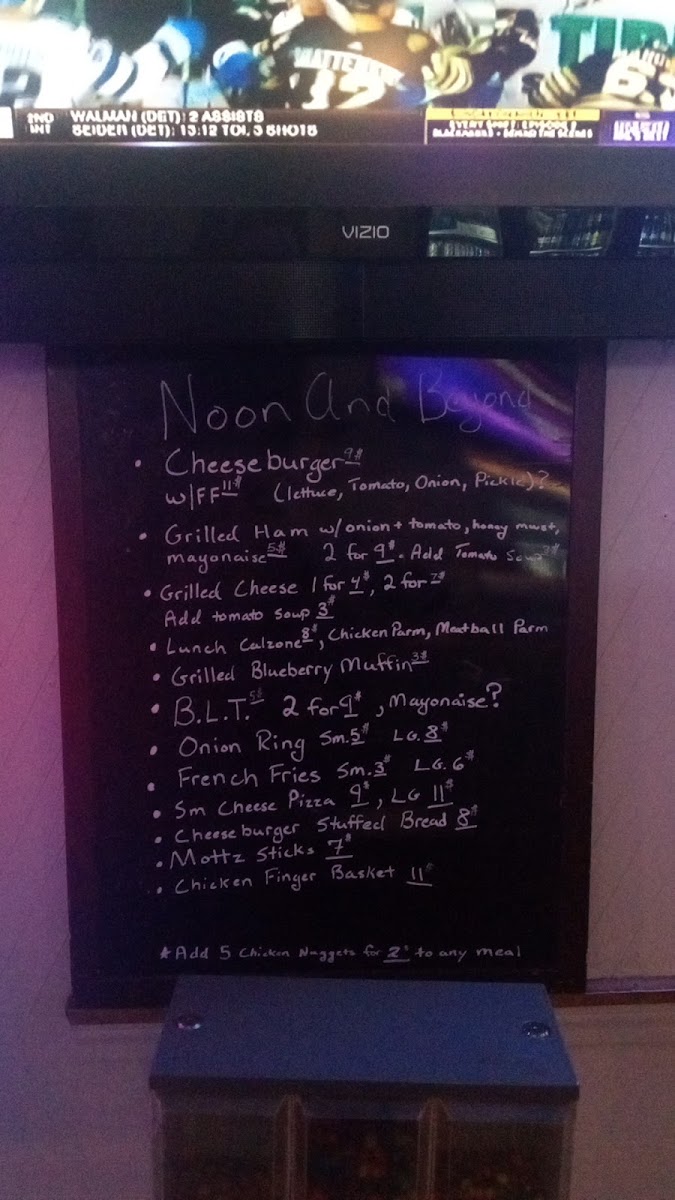 2ND
INT
WALMAN (DET): 2 ASSISTS
SEIDER (DET): 13:12 TOI, 3 SHOTS
VIZIO
Noon And Beyond
• Cheeseburger 9$
w/FF 11$ (lettuce, Tomato, Onion, Pickle)?
• Grilled Ham w/onion + tomato, honey must,
mayonaise 5$ 2 for 9$. Add Tomato Soup
• Grilled Cheese 1 for 4$, 2 for 7$
Add tomato soup 3$
• Lunch Calzone 8$, Chicken Parm, Meatball Parm
• Grilled Blueberry Muffin 3$
• B.L.T. 5$ 2 for 9$, Mayonaise?
• Onion Ring Sm. 5$ LG. 8$
• French Fries Sm. 3$ LG. 6$
• Sm Cheese Pizza 9$, LG 11$
• Cheeseburger Stuffed Bread 8$
• Mottz Sticks 7$
• Chicken Finger Basket 11$
★ Add 5 Chicken Nuggets for 2$ to any meal